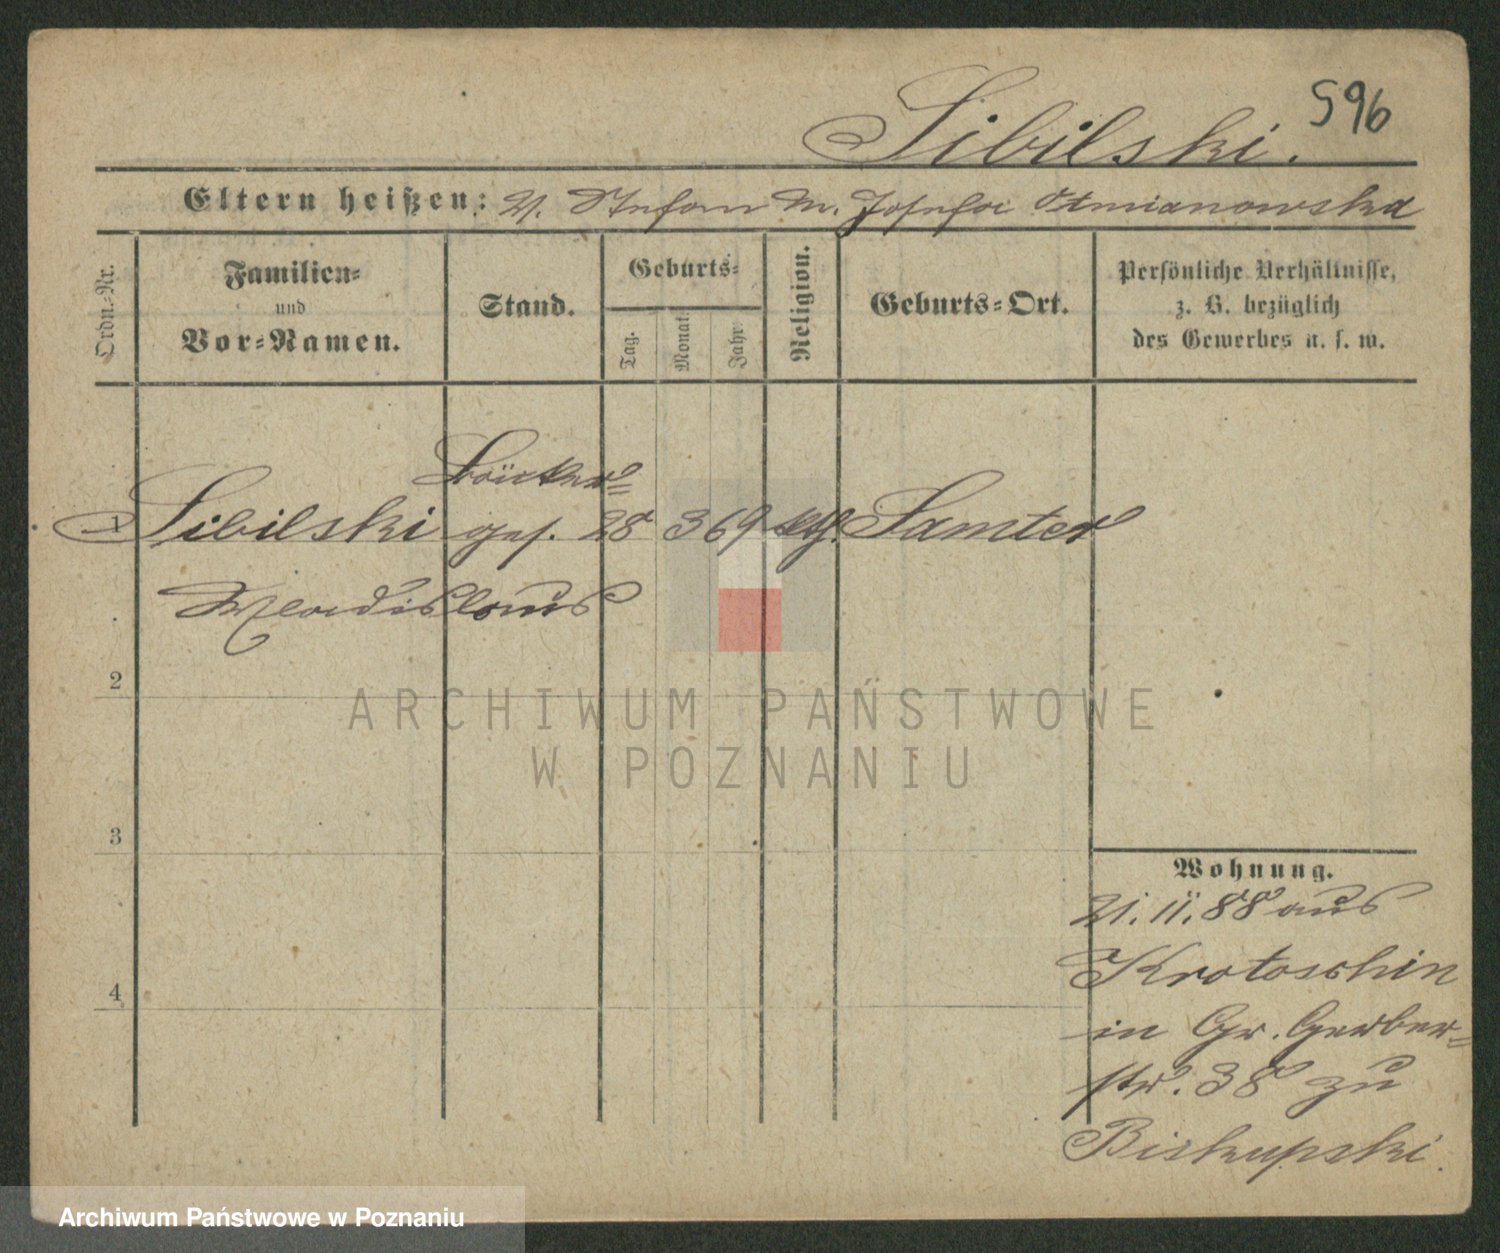 596
Sibilski.
Eltern heißen: V. Stefan M. Josefa Otmianowska
Ordn.-Nr.
Familien-
und
Vor-Namen.
Stand.
Geburts-
Tag.
Monat.
Jahr
Religion.
Geburts-Ort.
Persönliche Verhältnisse,
z. B. bezüglich
des Gewerbes u. s. w.
Bäcker-
1 Sibilski ges. 28 3 69 ktl. Samter
Wladislaus
2
3
4
Wohnung.
21. 11. 88 aus
Krotoschin
in Gr. Gerber-
str. 38 zu
Biskupski.
ARCHIWUM PAŃSTWOWE
W POZNANIU
Archiwum Państwowe w Poznaniu